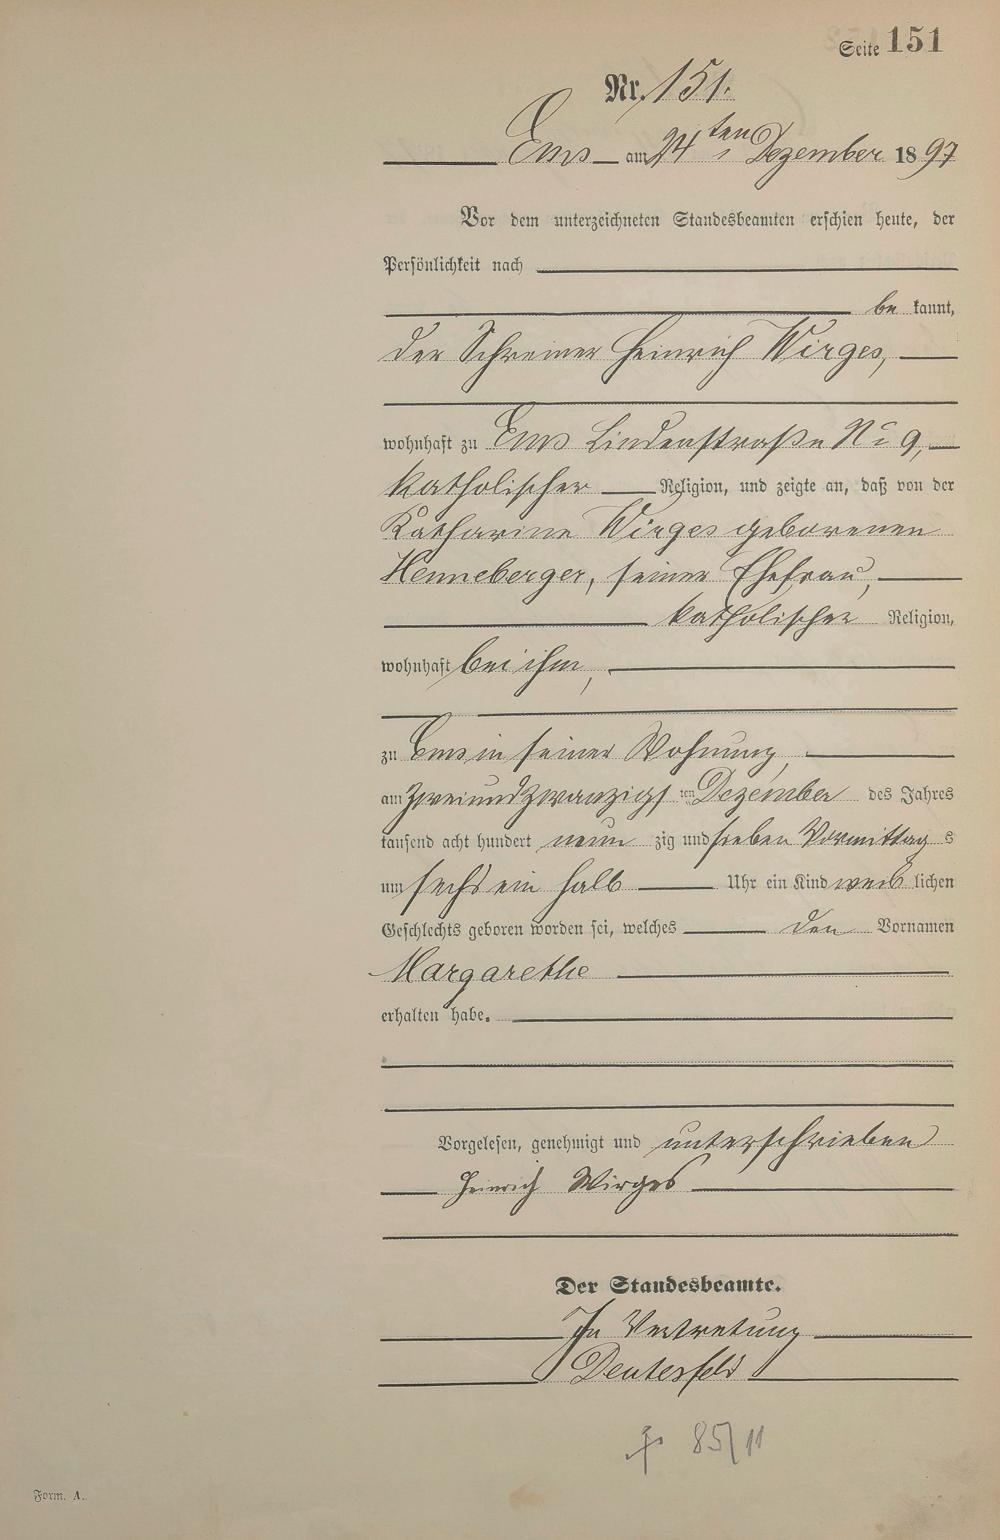 Seite 151
Nr. 151.
Ems am 24ten Dezember 1897
Vor dem unterzeichneten Standesbeamten erschien heute, der
Persönlichkeit nach
be kannt,
der Schreiner Heinrich Wirges,
wohnhaft zu Ems Lindenstraße No 9,
katholischer Religion, und zeigte an, daß von der
Katharine Wirges geborenen
Henneberger, seiner Ehefrau,
katholischer Religion,
wohnhaft bei ihm,
zu Ems in seiner Wohnung,
am zweiundzwanzigsten Dezember des Jahres
tausend acht hundert neun zig und sieben Vormittag s
um sechs ein halb Uhr ein Kind weib lichen
Geschlechts geboren worden sei, welches den Vornamen
Margarethe
erhalten habe.
Vorgelesen, genehmigt und unterschrieben
Heinrich Wirges
Der Standesbeamte.
In Vertretung
85/11
Form. A.